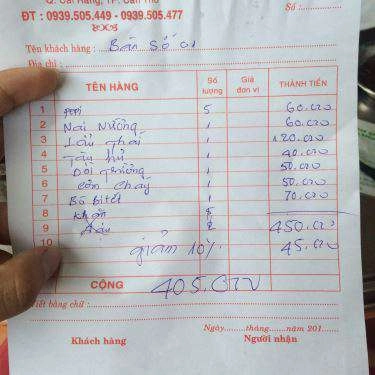 Q. Cái Răng, TP. Cần Thơ
ĐT : 0939.505.449 - 0939.505.477
Số :
Tên khách hàng : Bàn Số 01
Địa chỉ :
TÊN HÀNG Số lượng Giá đơn vị THÀNH TIỀN
1 pepsi 5 60.000
2 Nai Nướng 1 60.000
3 Lẩu thái 1 120.000
4 Tàu hủ 1 40.000
5 Dồi trường 1 50.000
6 Cơm cháy 1 50.000
7 Bò bítết 1 70.000
8 Khăn
9 Đậu 450.000
10 giảm 10% 45.000
CỘNG 405.000
Viết bằng chữ :
Ngày.......tháng.......năm 201
Khách hàng Người nhận